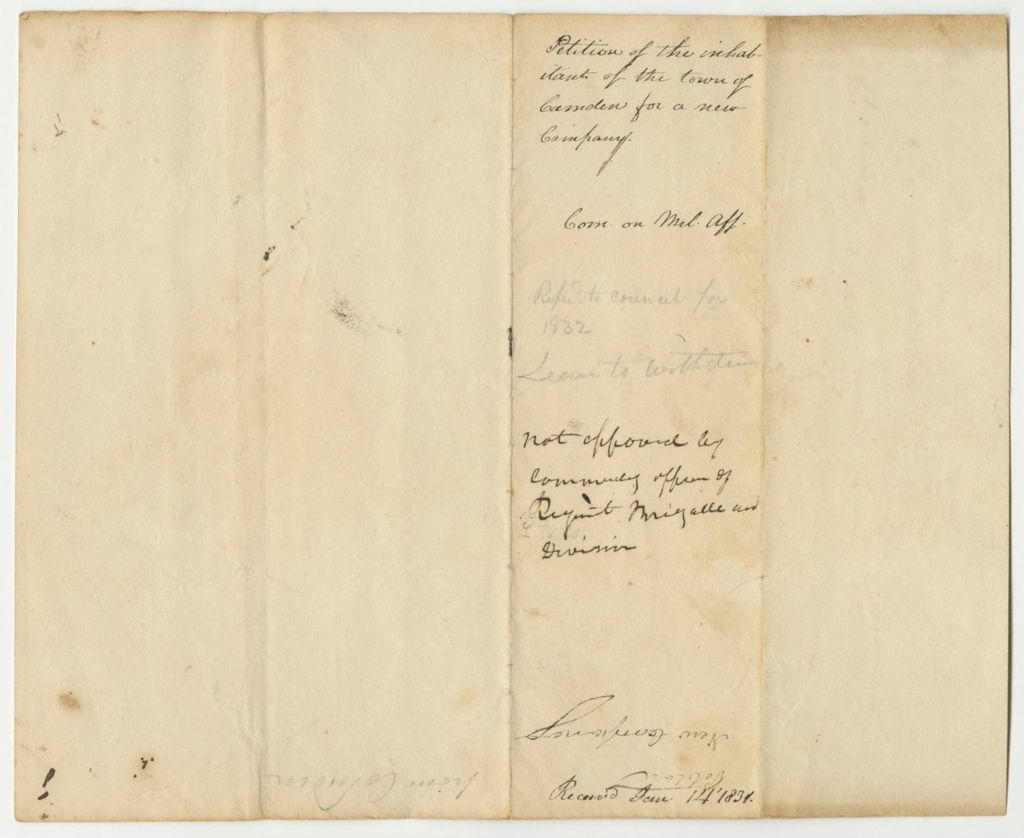 Petition of the inhab-
itants of the town of
Camden for a new
Company.
Com. on Mil. Aff.
Refer'd to council for
1832
Leave to withdraw
not approved by
Commanding officer of
Regimt Brigade and
Division
New Company
Received Jan 14 1831.
from Camden